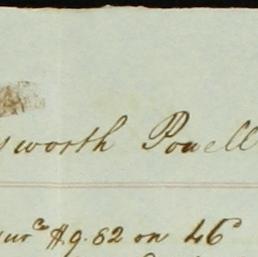 sworth Powell
surce $9.62 on 46